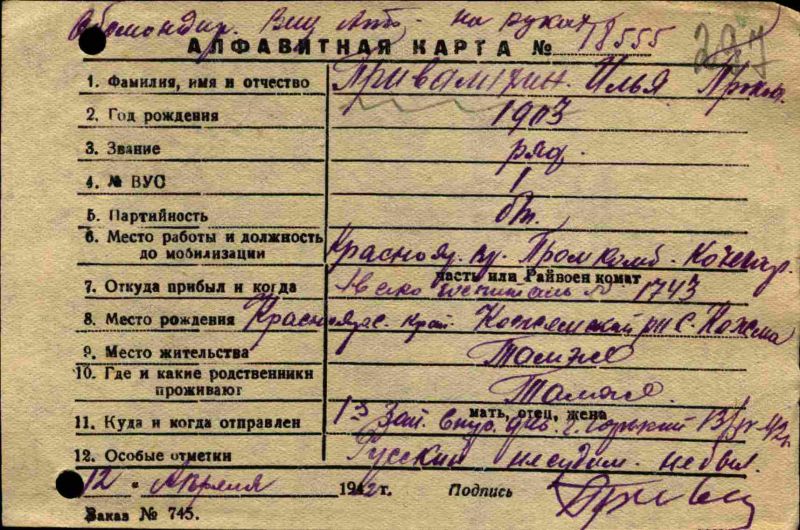 на руках
АЛФАВИТНАЯ КАРТА № 18555
237
1. Фамилия, имя и отчество Привалихин Илья Прок
2. Год рождения 1903
3. Звание ряд.
4. № ВУС 1
5. Партийность бп.
6. Место работы и должность Краснояр. кр. Промкомб. Кочегар.
до мобилизации
часть или Райвоен комат
7. Откуда прибыл и когда госпиталь № 1743
8. Место рождения Краснояс. край Кежемский рн с. Кежма
9. Место жительства Тамже
10. Где и какие родственники
проживают Тамже.
мать, отец, жена
11. Куда и когда отправлен 1й Зап. г. Горький 13/IV-42г.
12. Особые отметки Русский несудим. небыл.
12 " Апреля 1942 г. Подпись
Заказ № 745.